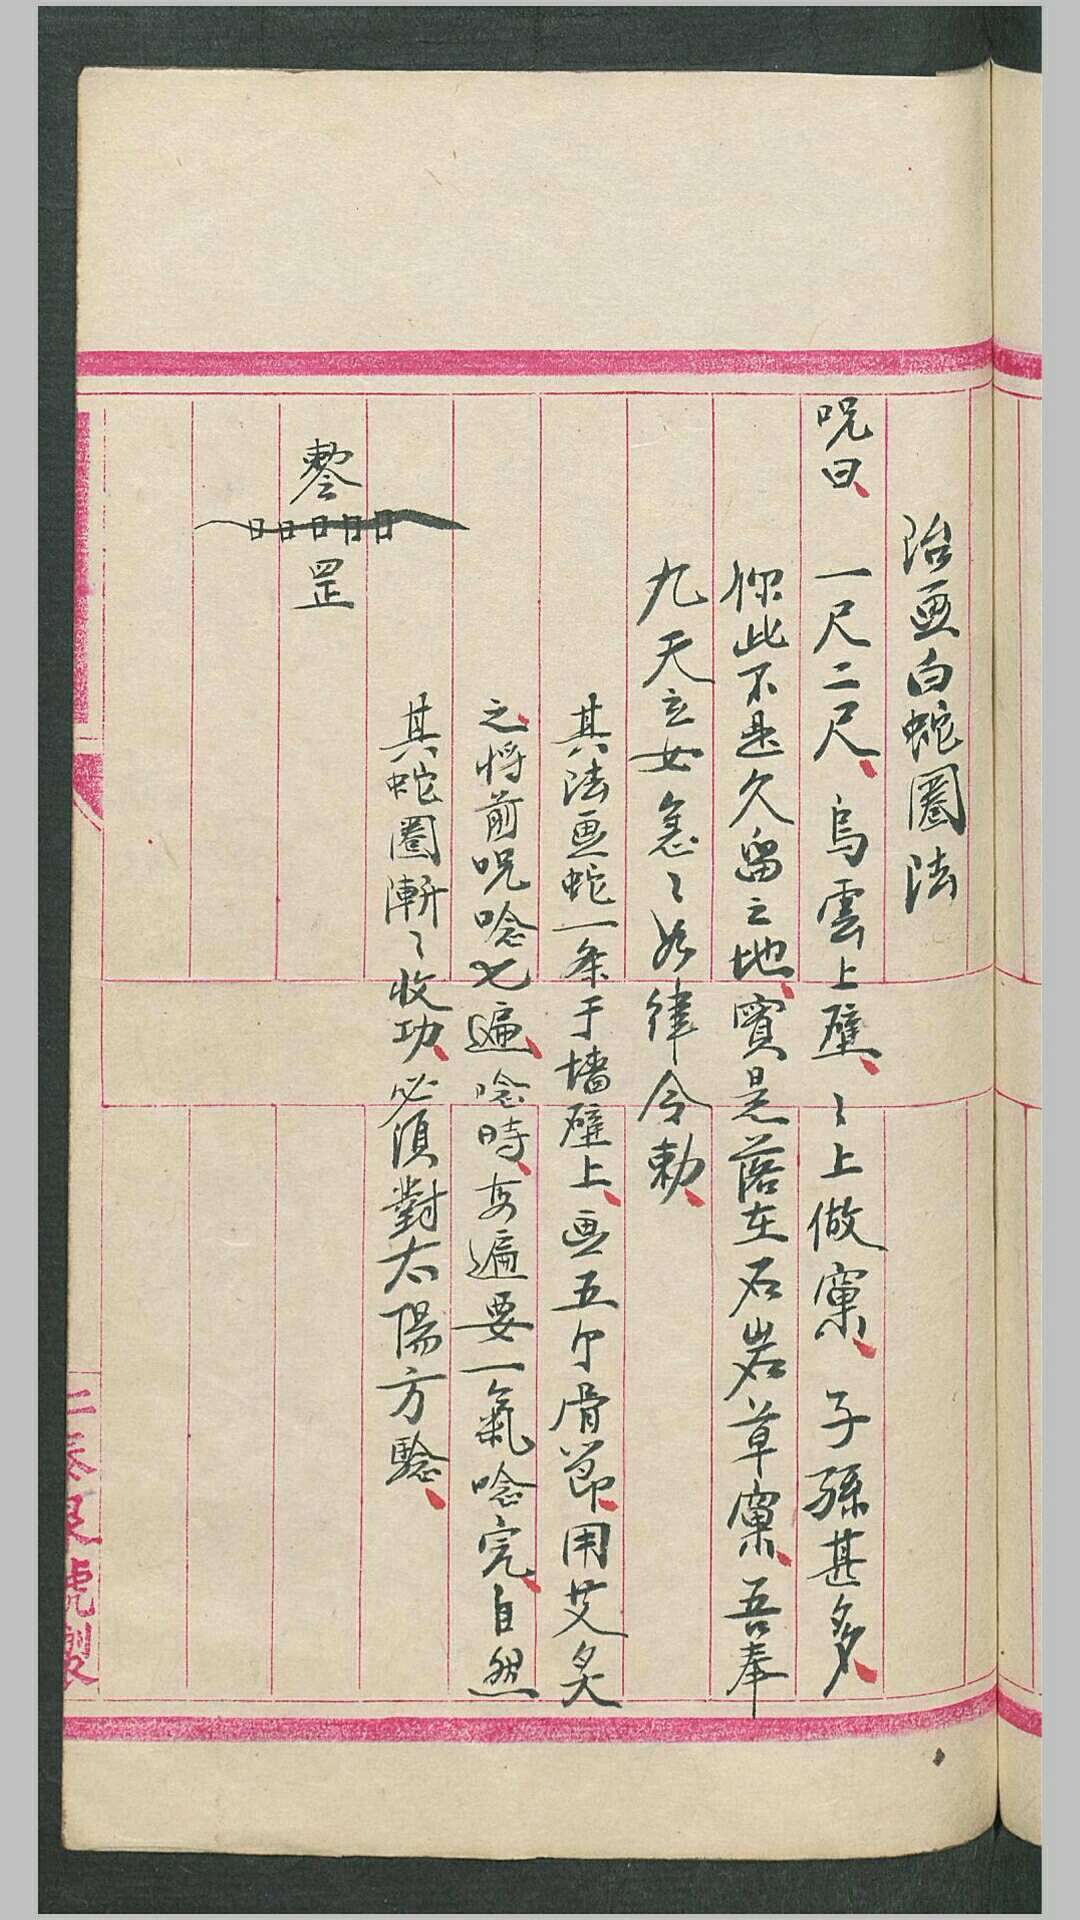 治画白蛇圈法
呪曰、一尺二尺、烏雲上壁、〻上做窠、子孫甚多、
你此不是久留之地、實是落在石岩草窠、吾奉
九天玄女急〻如律令勅、
其法画蛇一条于墻壁上、画五个骨節、用艾炙
之、將前呪唸七遍、唸時、每遍要一氣唸完、自然
其蛇圈漸〻收功、必須對太陽方騐、
罡